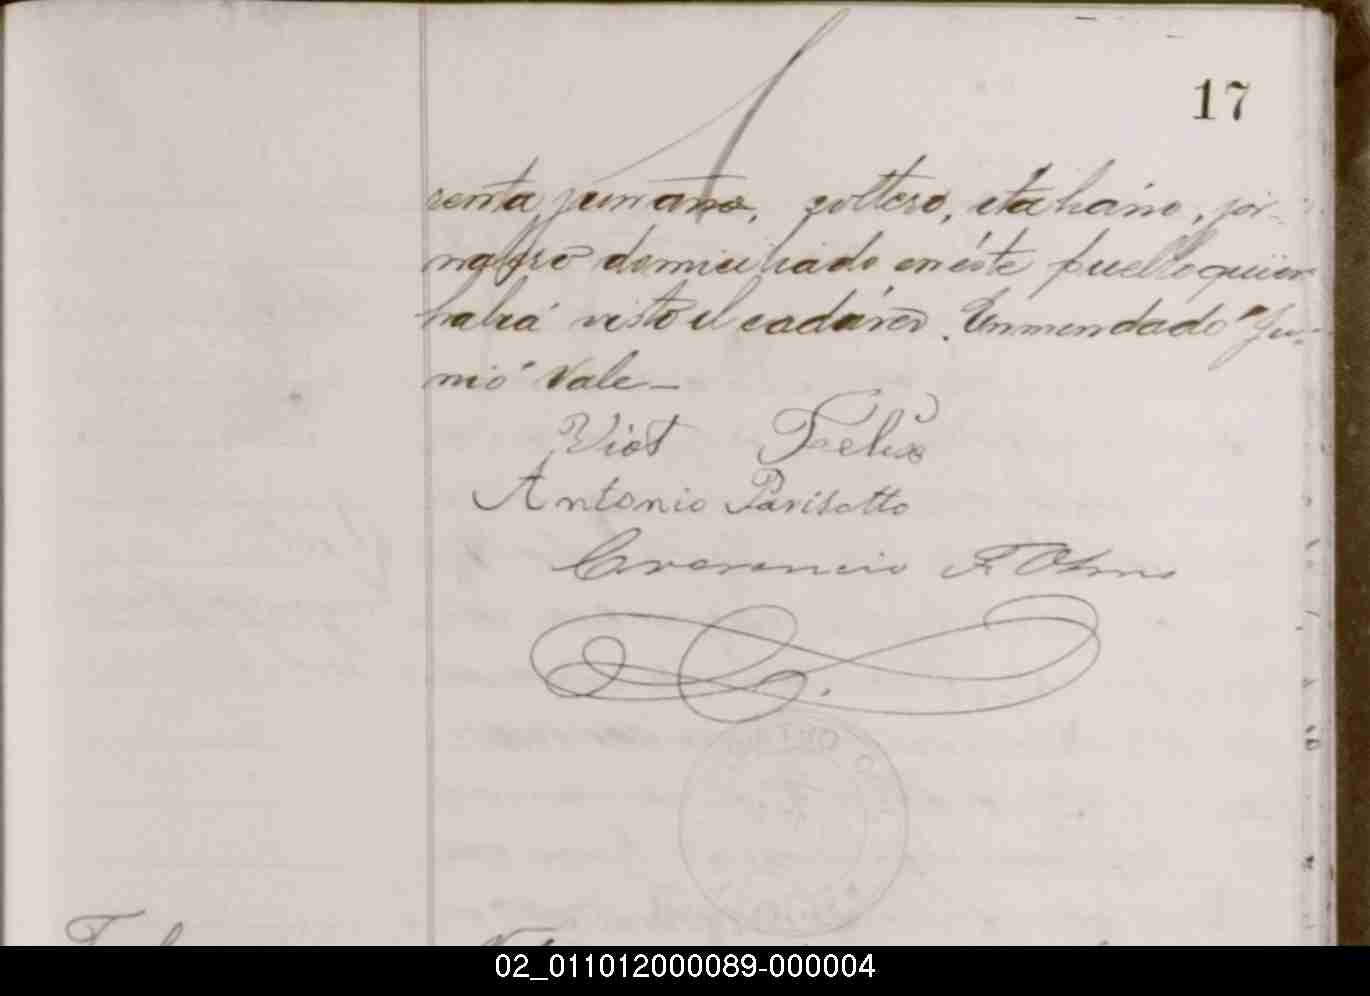 17
renta y un años, soltero, italiano, jor-
nalero domiciliado en éste pueblo quien
había visto el cadáver. Enmendado "Ju-
nio" Vale—
Viot Felix
Antonio Parisotto
02_011012000089-000004